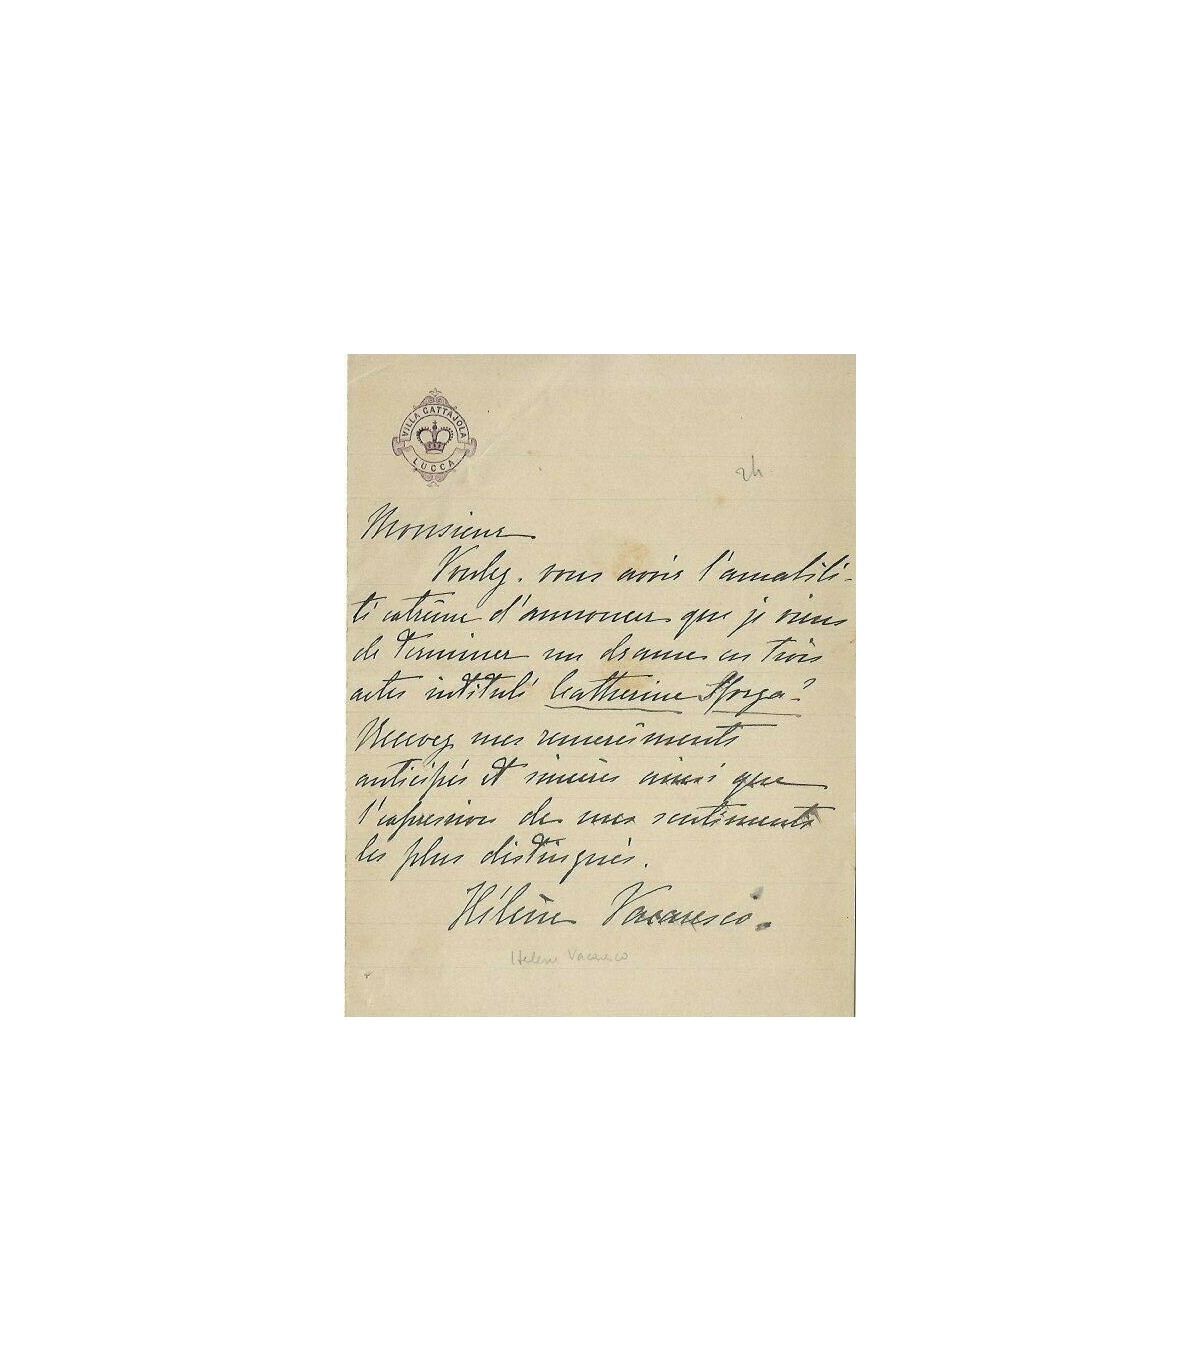 VILLA GATTAJOLA
LUCCA
Monsieur
Voulez-vous avoir l'amabili-
té extrême d'annoncer que je viens
de terminer un drame en trois
actes intitulé Catherine Sforza?
Recevez mes remercîments
anticipés et sincères ainsi que
l'expression de mes sentiments
les plus distingués.
Hélène Vacaresco.
Helene Vacaresco